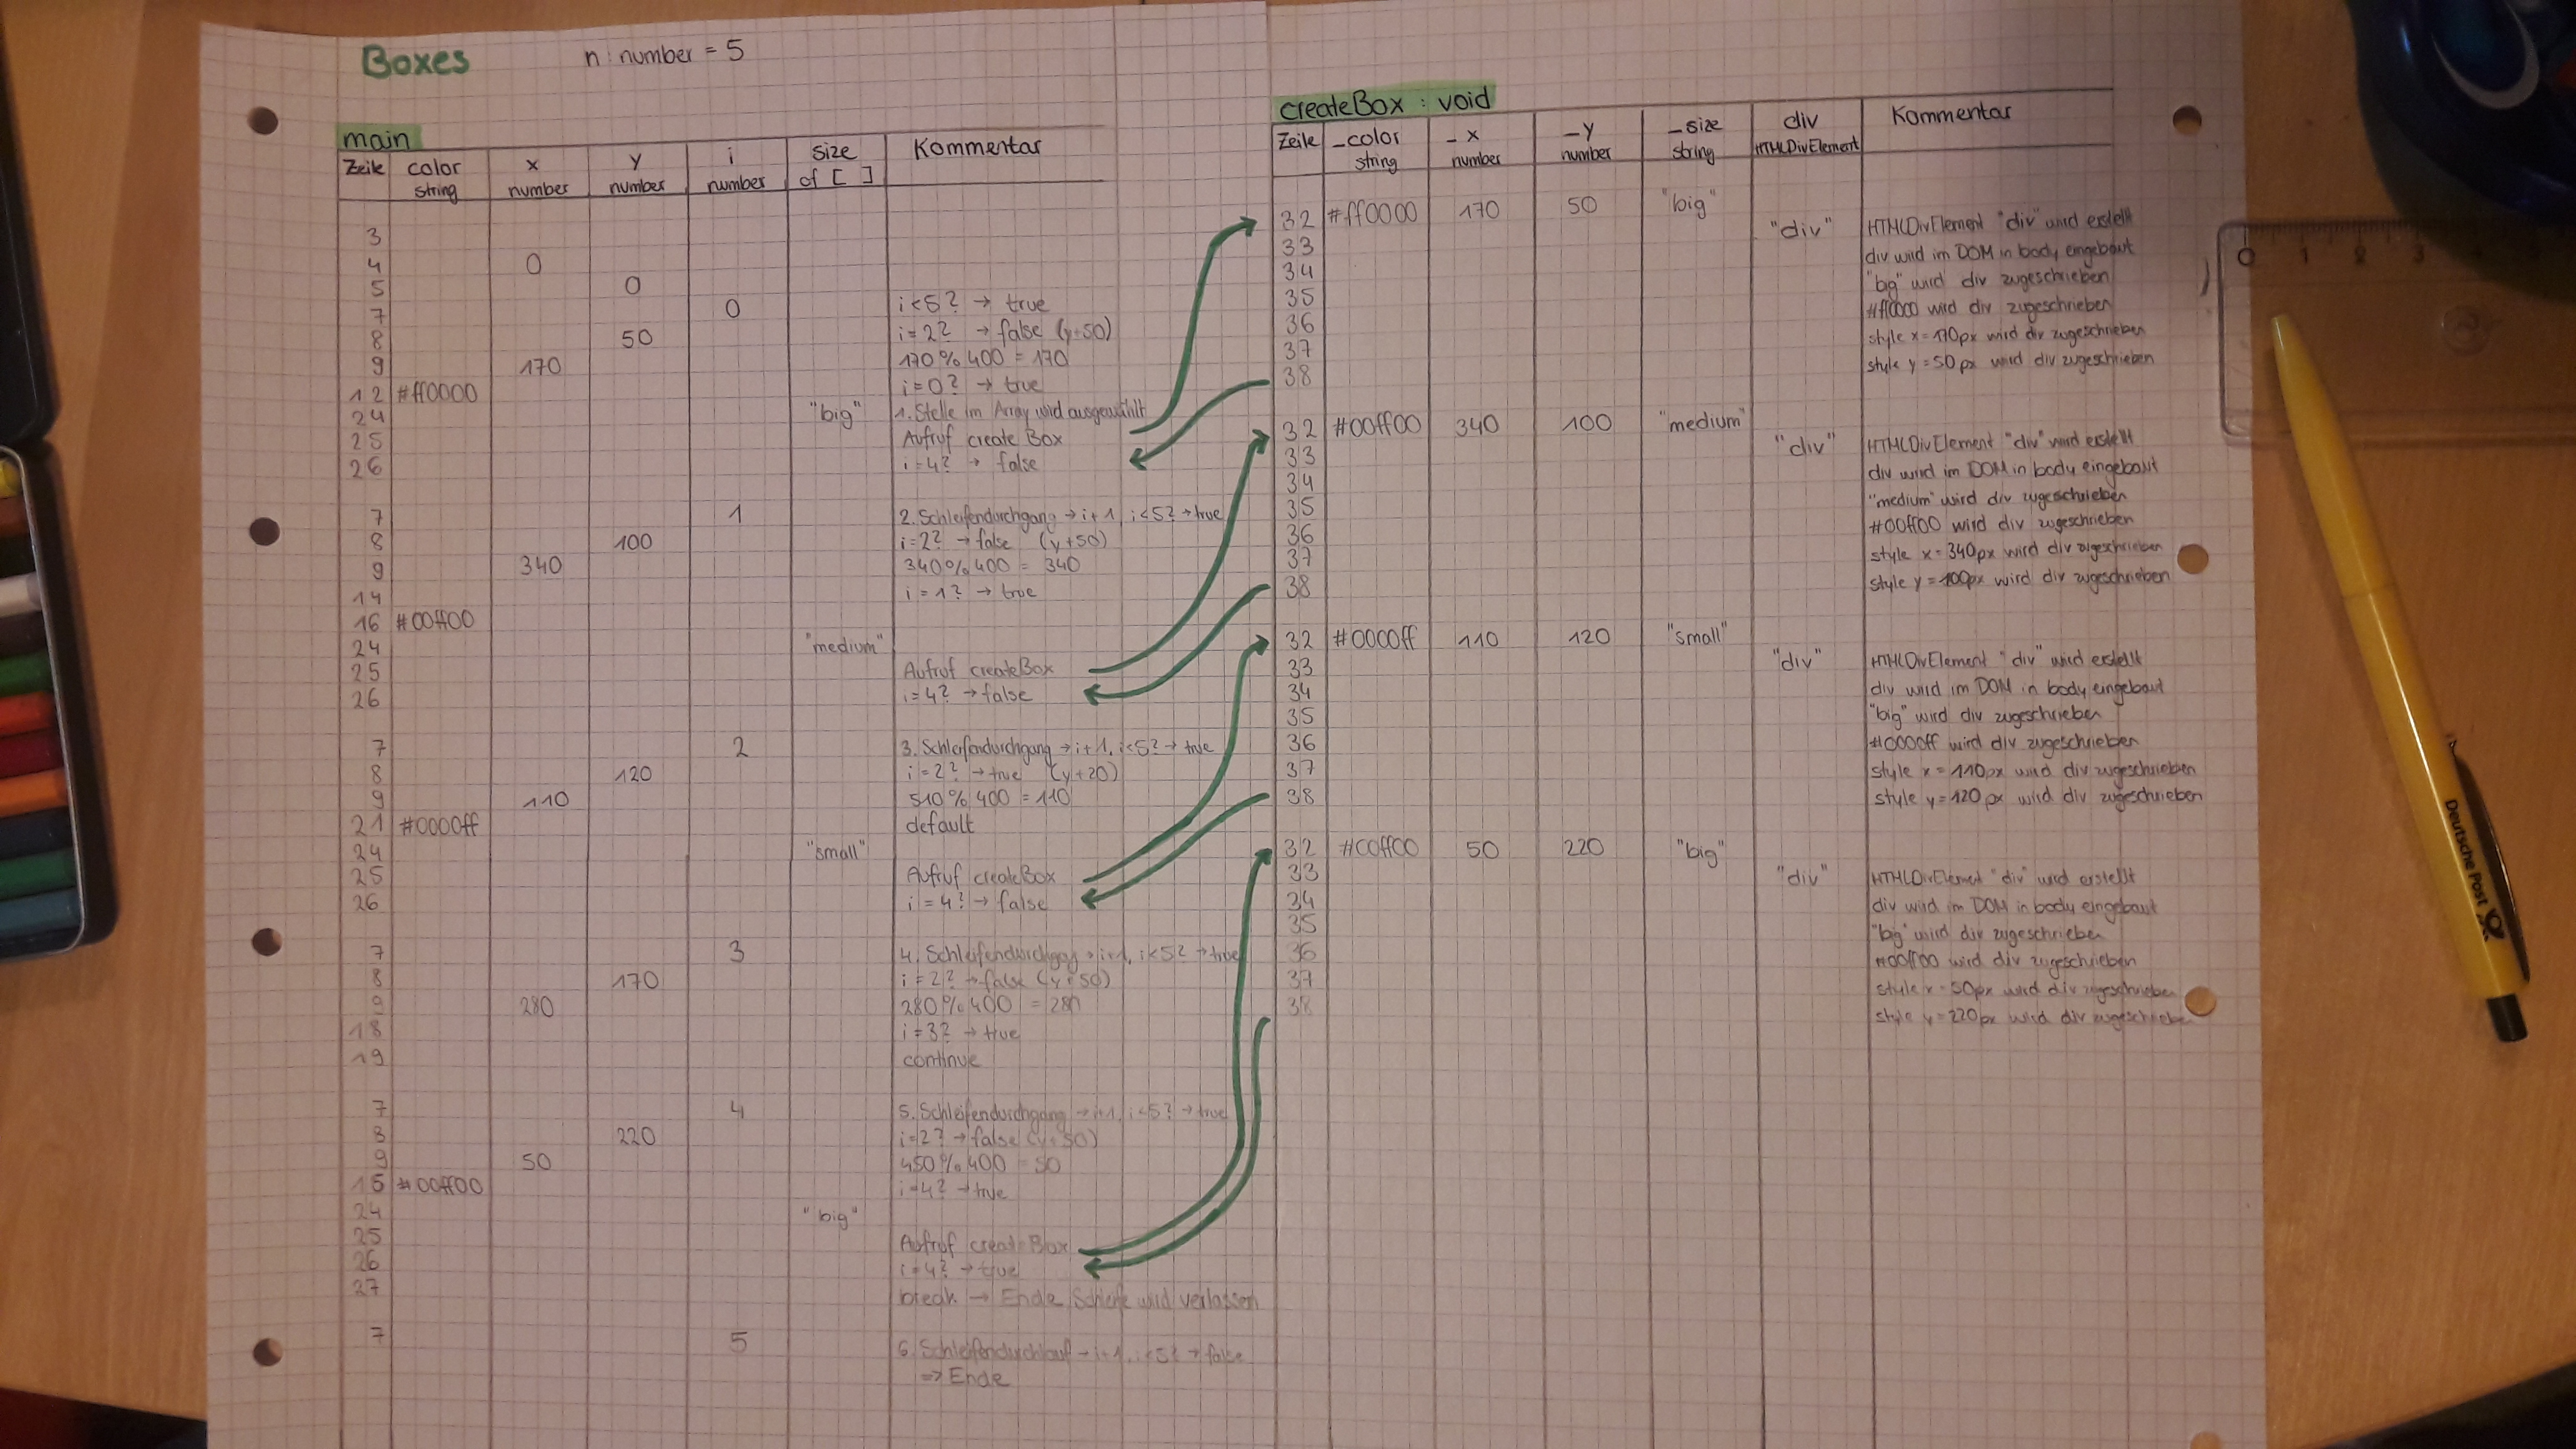 Boxes n: number = 5
main
Zeile color string x number y number i number size of [ ] Kommentar
3
4 0
5 0
7 0 i<5? → true
8 50 i=2? → false (y+50)
9 170 170%400 = 170
i=0? → true
12 #ff0000
24 "big" 1. Stelle im Array wird ausgewählt
25 Aufruf create Box
26 i=4? → false
7 1 2. Schleifendurchgang → i+1, i<5? → true
8 100 i=2? → false (y+50)
9 340 340%400 = 340
14 i=1? → true
16 #00ff00
24 "medium"
25 Aufruf createBox
26 i=4? → false
7 2 3. Schleifendurchgang → i+1, i<5? → true
8 120 i=2? → true (y+20)
9 110 510%400 = 110
21 #0000ff default
24 "small"
25 Aufruf createBox
26 i=4? → false
7 3 4. Schleifendurchgang → i+1, i<5? → true
8 170 i=2? → false (y+50)
9 280 280%400 = 280
18 i=3? → true
19 continue
7 4 5. Schleifendurchgang → i+1, i<5? → true
8 220 i=2? → false (y+50)
9 50 450%400 = 50
#00ff00 i=4? → true
24 "big"
25 Aufruf createBox
26 i=4? → true
27 break → Ende, wird verlassen
7 5 6. Schleifendurchlauf → i+1, i<5? → false
=> Ende
createBox : void
Zeile _color string _x number _y number _size string div HTMLDivElement Kommentar
32 #ff0000 170 50 "big"
33 "div" HTMLDivElement "div" wird erstellt
34 div wird im DOM in body eingebaut
35 "big" wird div zugeschrieben
36 #ff0000 wird div zugeschrieben
37 style x=170px wird div zugeschrieben
38 style y=50px wird div zugeschrieben
32 #00ff00 340 100 "medium"
33 "div" HTMLDivElement "div" wird erstellt
34 div wird im DOM in body eingebaut
35 "medium" wird div zugeschrieben
36 #00ff00 wird div zugeschrieben
37 style x=340px wird div zugeschrieben
38 style y=100px wird div zugeschrieben
32 #0000ff 110 120 "small"
33 "div" HTMLDivElement "div" wird erstellt
34 div wird im DOM in body eingebaut
35 "big" wird div zugeschrieben
36 #0000ff wird div zugeschrieben
37 style x=110px wird div zugeschrieben
38 style y=120px wird div zugeschrieben
32 #00ff00 50 220 "big"
33 "div" HTMLDivElement "div" wird erstellt
34 div wird im DOM in body eingebaut
35 "big" wird div zugeschrieben
36 #00ff00 wird div zugeschrieben
37 style x=50px wird div zugeschrieben
38 style y=220px wird div zugeschrieben
0 1 2 3
Deutsche Post